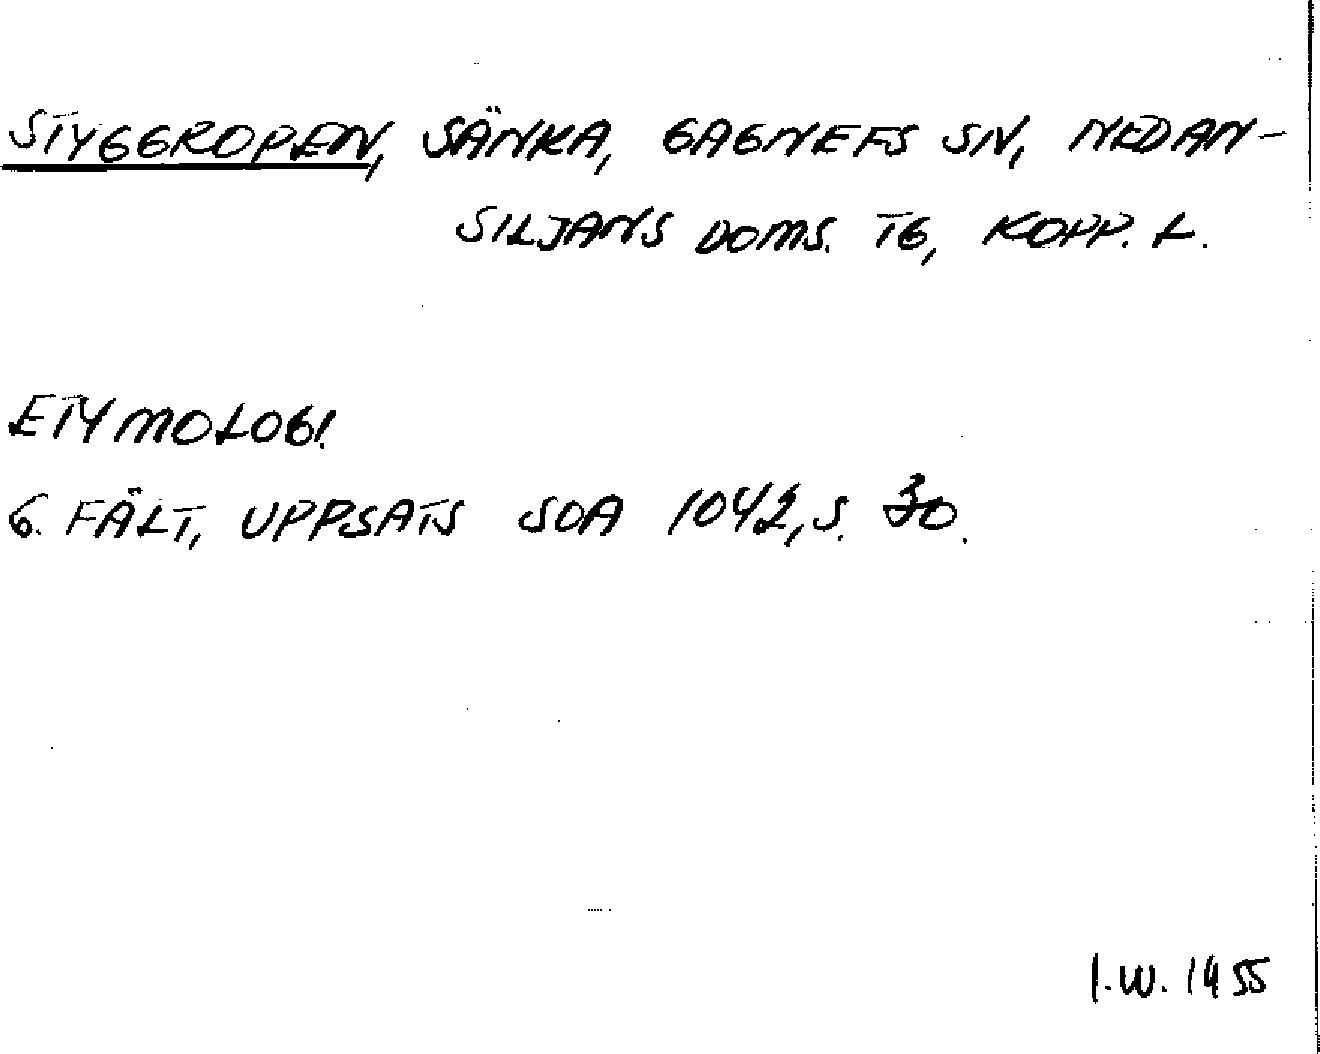 STYGGROPEN, SÄNKA, GAGNEFS SN, NEDAN-
SILJANS DOMS. TG, KOPP. L.
ETYMOLOGI.
G. FÄLT, UPPSATS SOA 1042, S. 30.
I.W. 1955